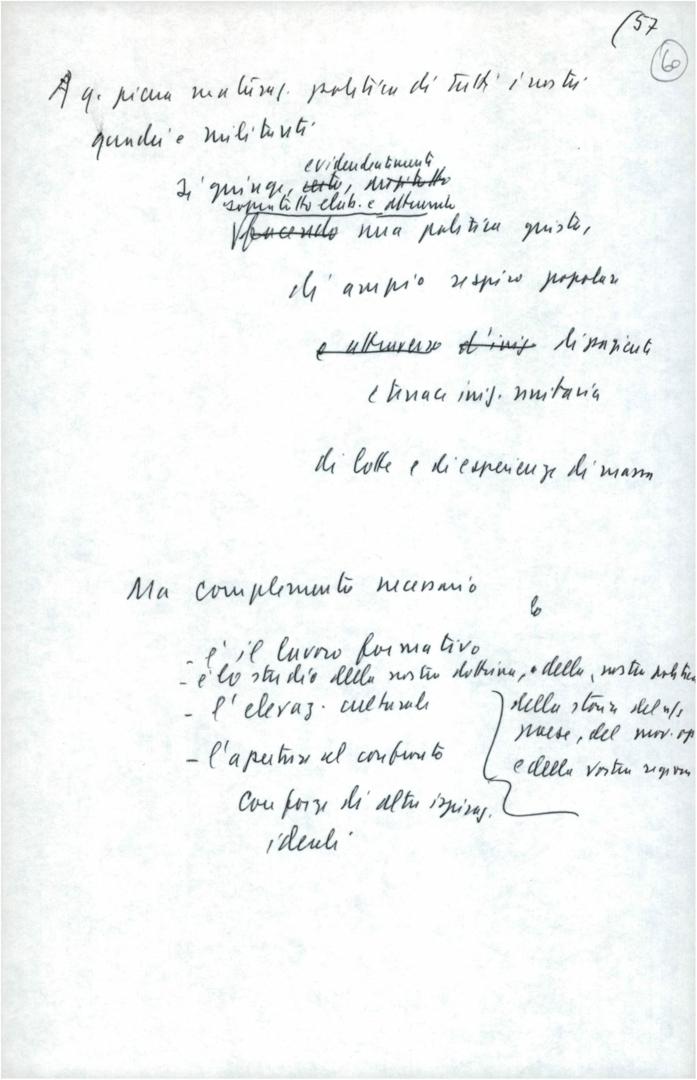 57
60
A q. piena maturaz. politica di tutti i nostri
quadri e militanti
evidentemente,
si giunge, certo, soprattutto
soprattutto elab. e attuando
facendo una politica giusta,
di ampio respiro popolare
e attraverso d'iniz di paziente
e tenace iniz. unitaria
di lotte e di esperienze di massa
Ma complemento necessario
- è il lavoro formativo
- è lo studio della nostra dottrina, della nostra politica
- l'elevaz. culturale
della storia del ns
paese, del mov. op
- l'apertura al confronto
e della vostra regione
con forze di altra ispiraz.
ideali